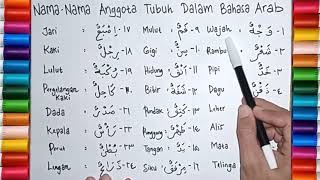 Nama-Nama Anggota Tubuh Dalam Bahasa Arab
١- وَجْهٌ : Wajah ٩- فَمٌ : Mulut ١٧- اِصْبَعٌ : Jari
٢- شَعْرٌ : Rambut ١٠- سِنٌّ : Gigi ١٨- رِجْلٌ : Kaki
٣- خَدٌّ : Pipi ١١- أَنْفٌ : Hidung ١٩- رُكْبَةٌ : Lulut
Dagu Bibir ٢٠- كَعْبٌ : Pergelangan Kaki
Leher Pundak ٢١- صَدْرٌ : Dada
Alis ١٤- ظَهْرٌ : Punggung ٢٢- رَأْسٌ : Kepala
Mata ١٥- يَدٌ : Tangan ٢٣- بَطْنٌ : Perut
Telinga ١٦- مِرْفَقٌ : Siku ٢٤- ذِرَاعٌ : Lengan